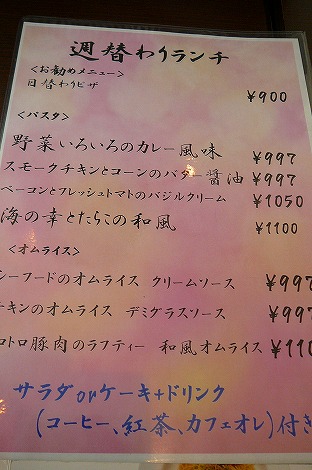 週替わりランチ
<お勧めメニュー>
日替わりピザ ¥900
<パスタ>
野菜いろいろのカレー風味 ¥997
スモークチキンとコーンのバター醤油 ¥997
ベーコンとフレッシュトマトのバジルクリーム ¥1050
海の幸とたらこの和風 ¥1100
<オムライス>
シーフードのオムライス クリームソース ¥997
チキンのオムライス デミグラスソース ¥997
トロトロ豚肉のラフティー 和風オムライス ¥110
サラダorケーキ+ドリンク
(コーヒー、紅茶、カフェオレ)付き